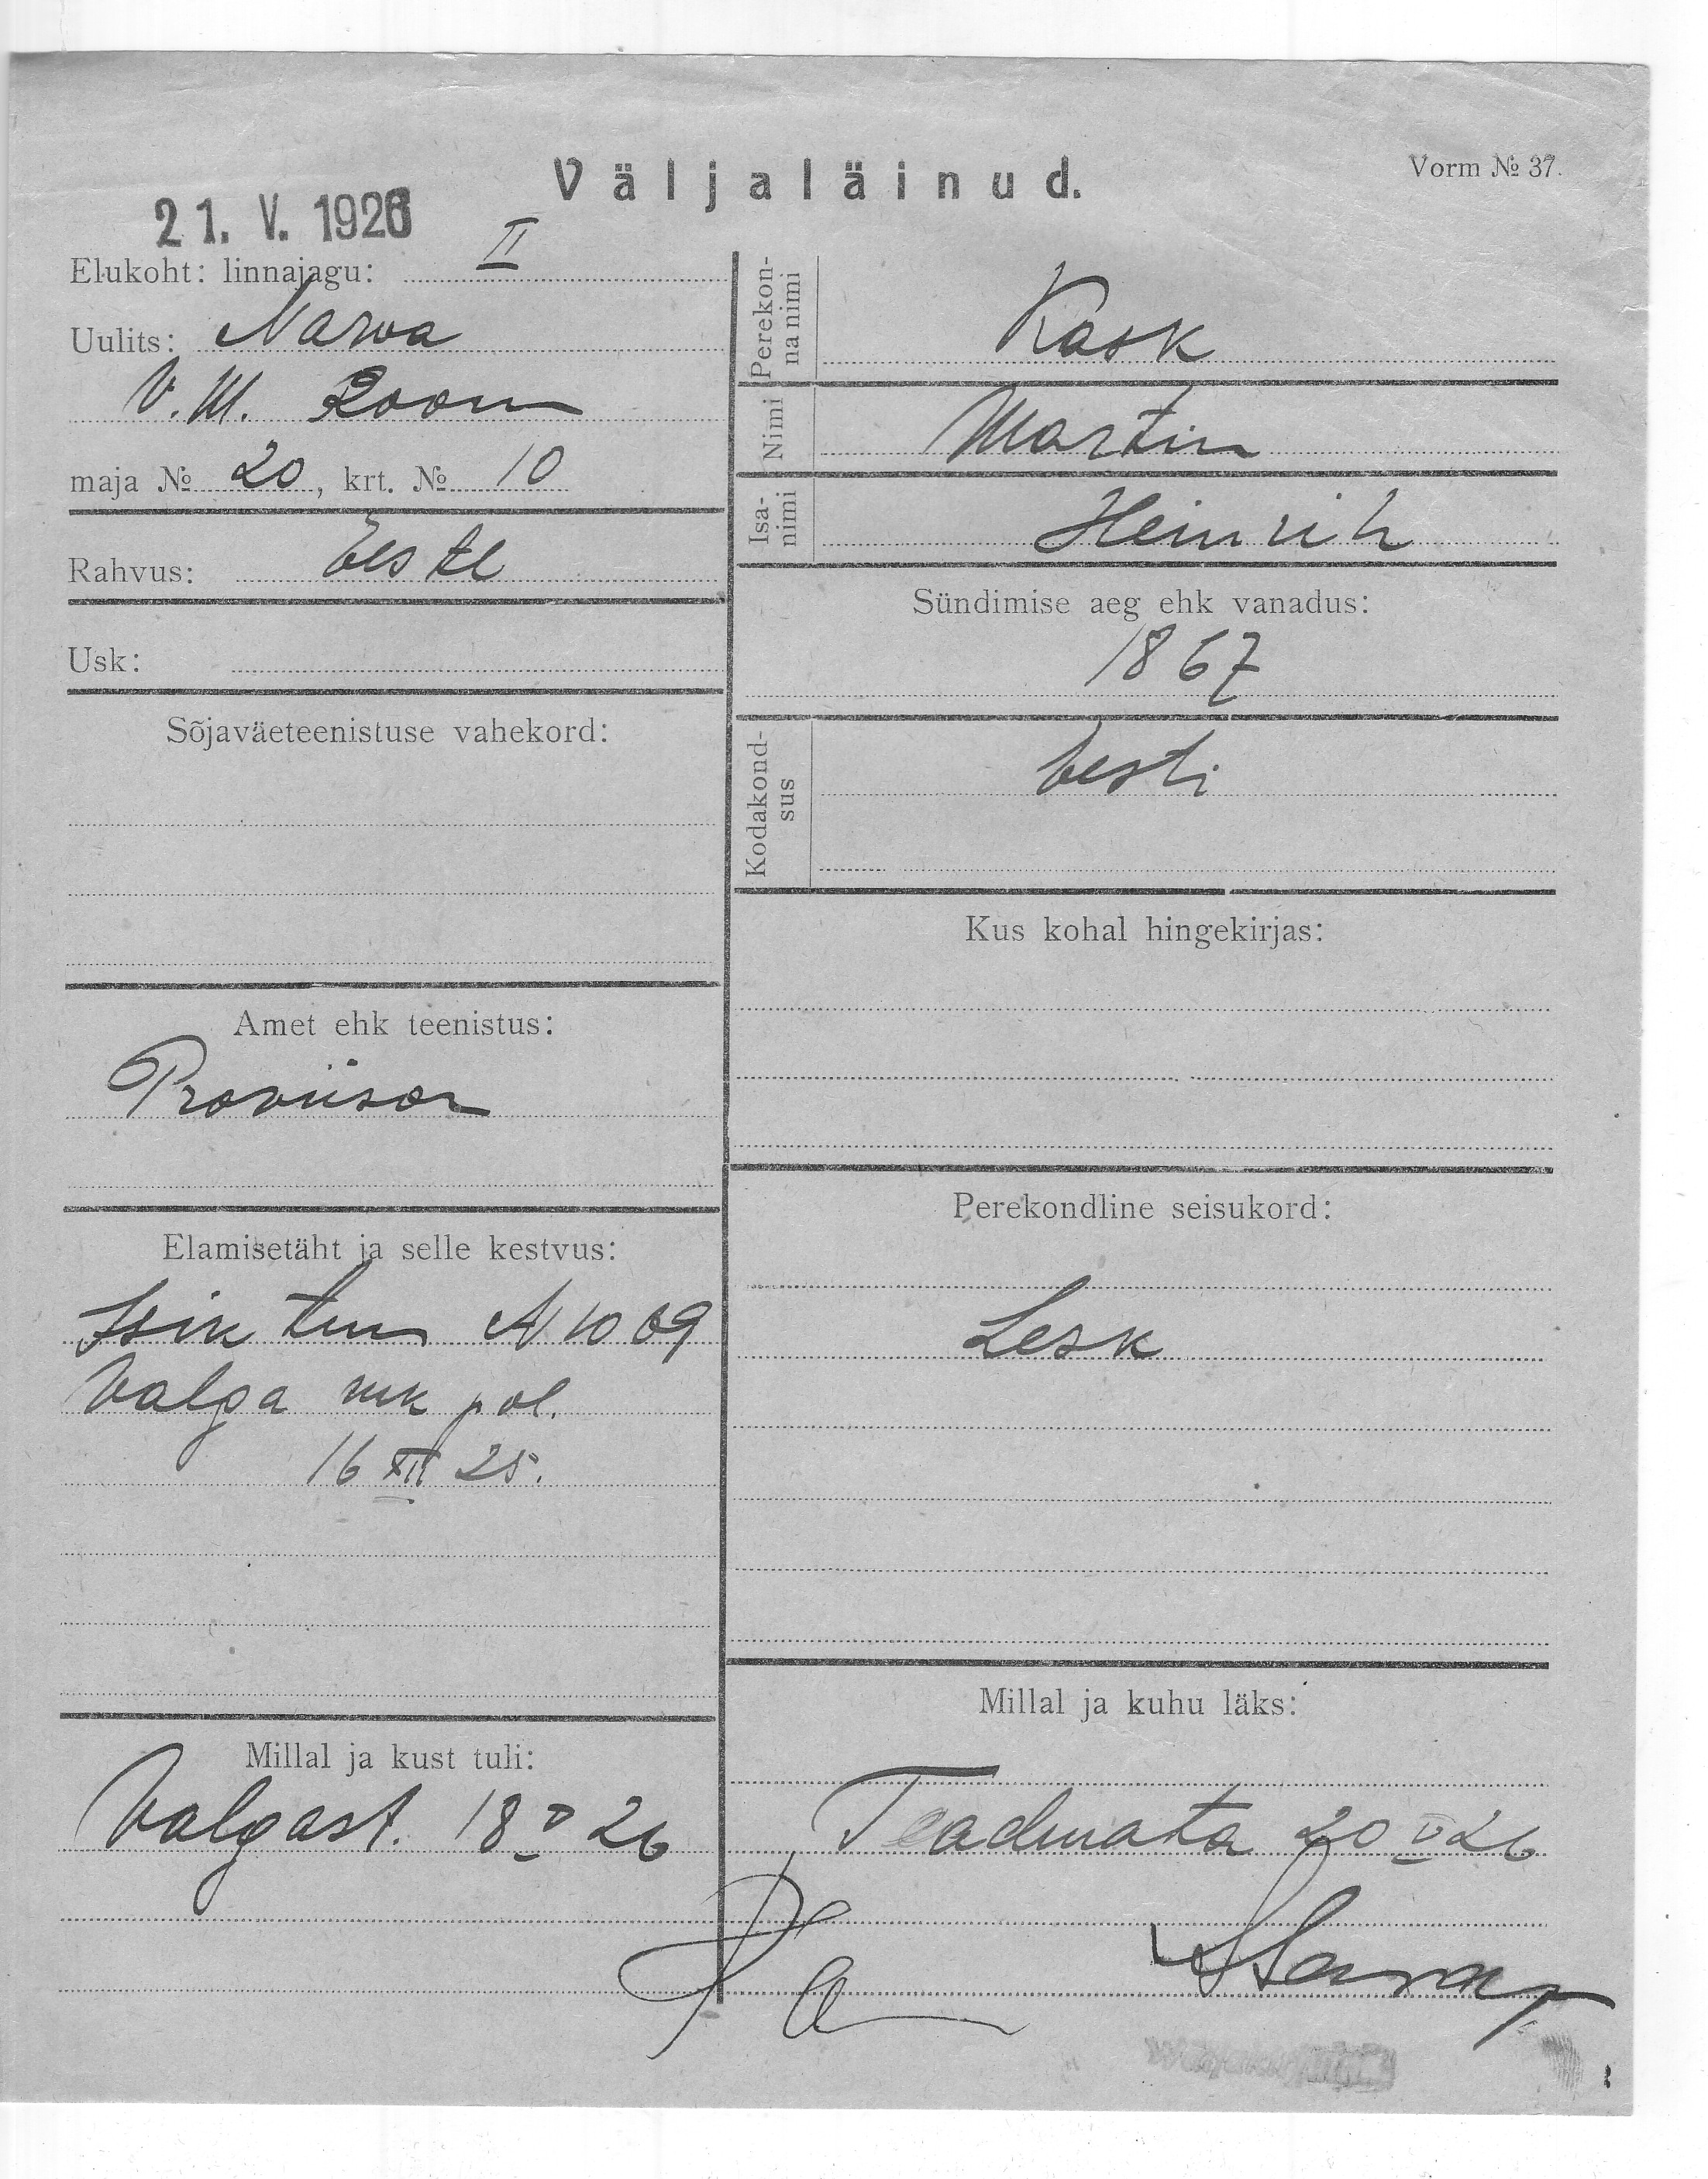 Väljaläinud.
Vorm № 37.
21. V. 1926
Elukoht: linnajagu: II
Uulits: Narva
V. M. Room
maja № 20, krt. № 10
Rahvus: Eestl
Usk:
Sõjaväeteenistuse vahekord:
Amet ehk teenistus:
Proviisor
Elamisetäht ja selle kestvus:
Isik tun N 1069
Valga mk pol.
16 XII 25.
Millal ja kust tuli:
Valgast. 18 V 26
Perekon-
na nimi
Kask
Nimi Martin
Isa-
nimi
Heinrih
Sündimise aeg ehk vanadus:
1867
Kodakond-
sus
Eesti
Kus kohal hingekirjas:
Perekondline seisukord:
Lesk
Millal ja kuhu läks:
Teadmata 20 V 26